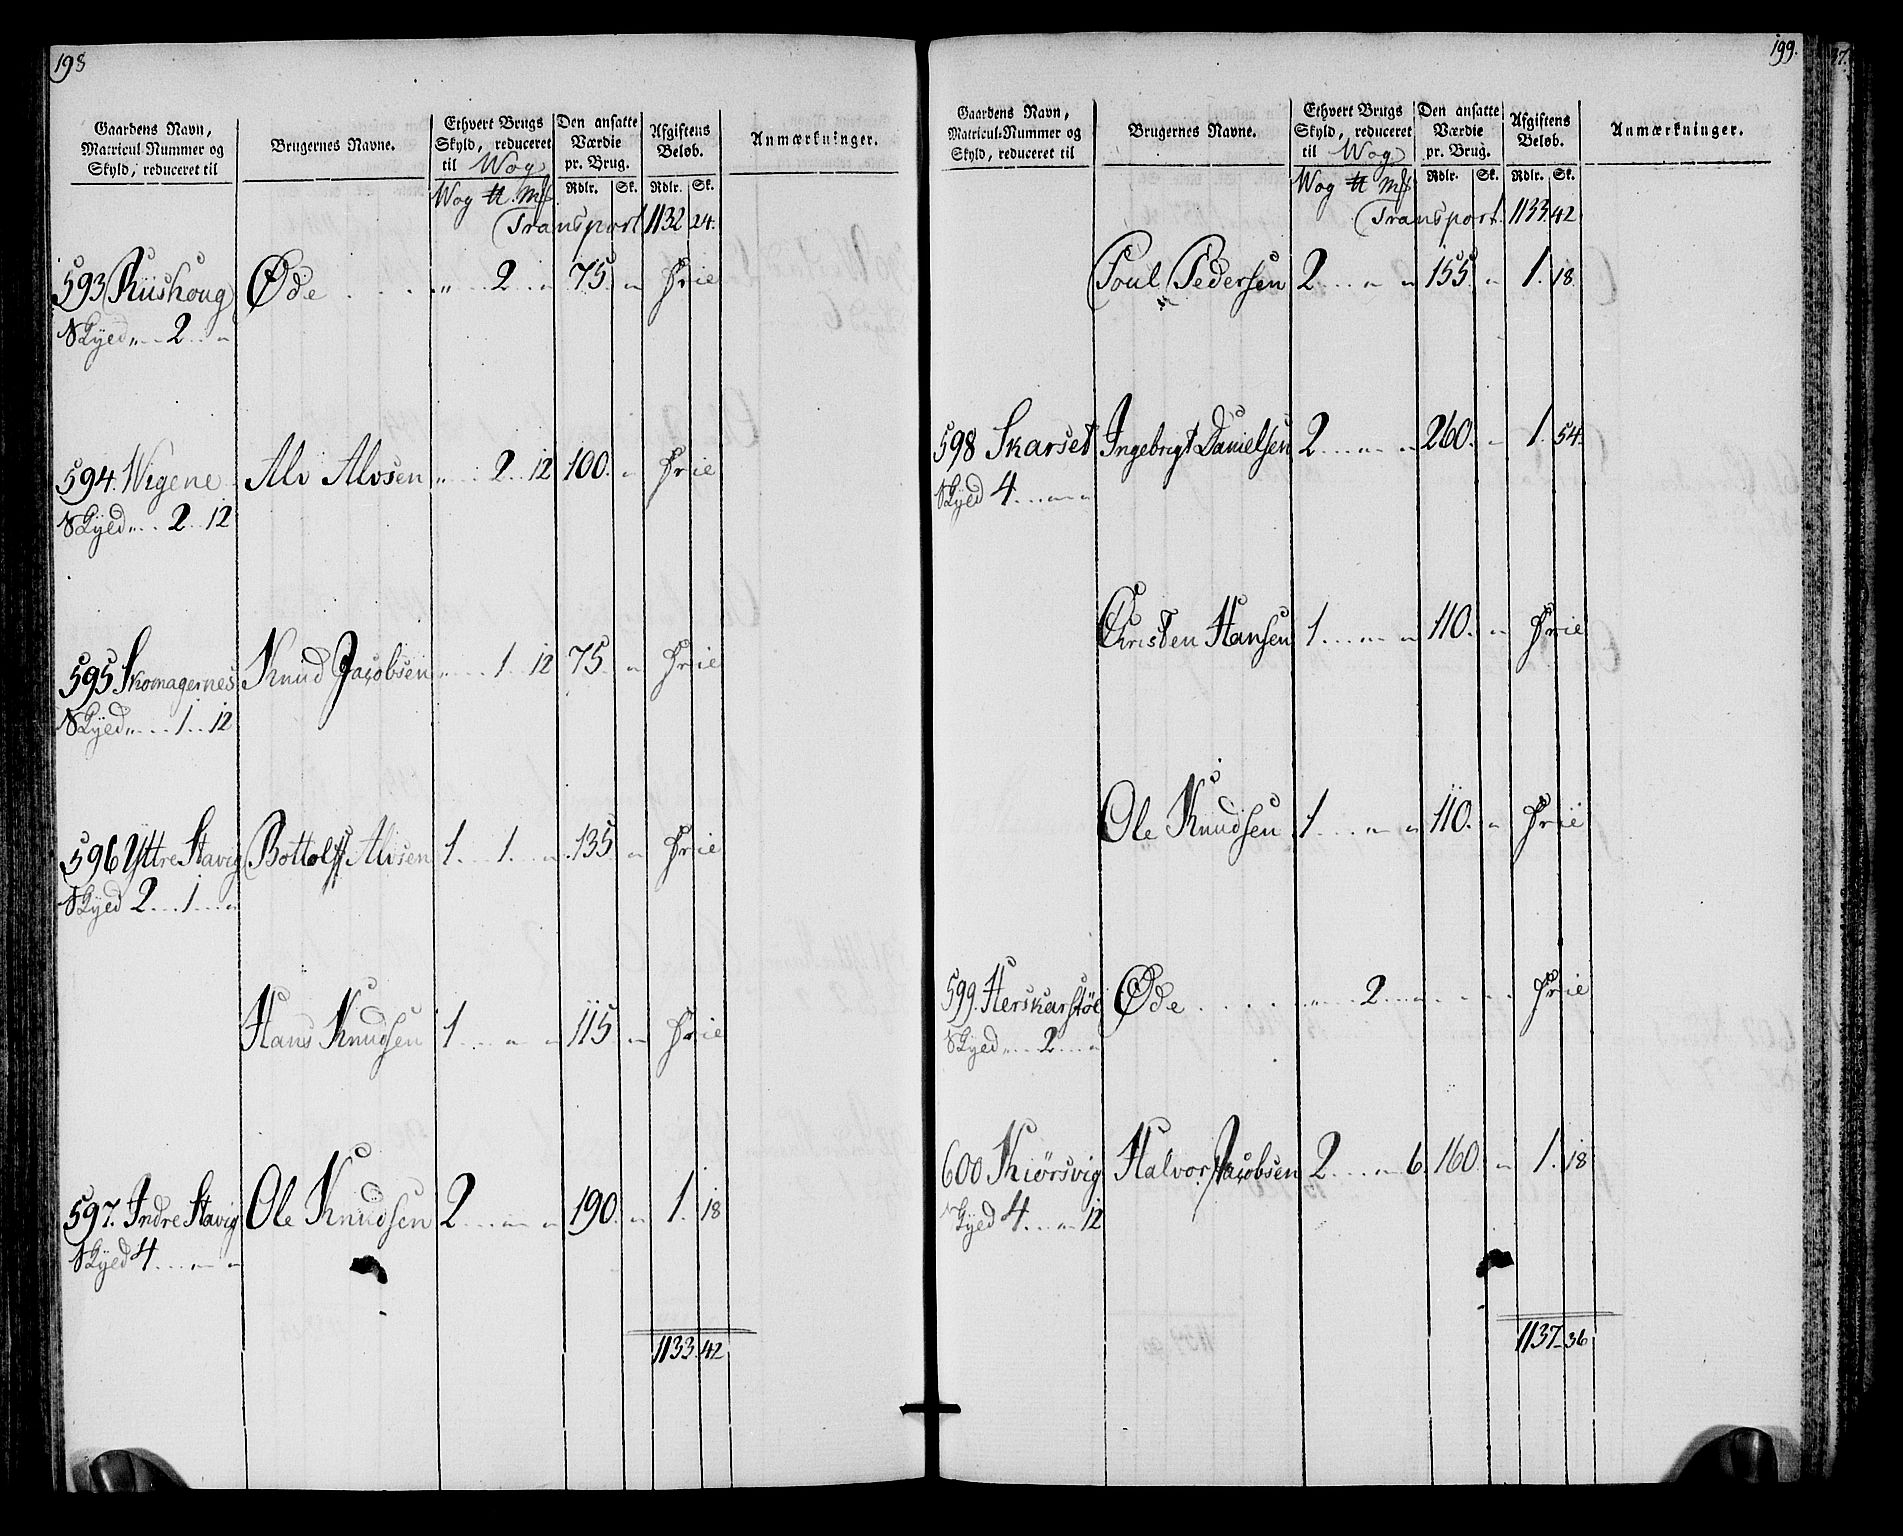 198
Gaardens Navn, Matricul-Nummer og Skyld, reduceret til | Brugernes Navne. | Ethvert Brugs Skyld, reduceret til Wog | Den ansatte Værdie pr. Brug. | Afgiftens Beløb. | Anmærkninger.
Wog ℔ Mk. | Rdlr. | Sk. | Rdlr. | Sk.
Transport 1132 24.
593 Riishoug Øde . . . „ . . 2 . . „ 75. „ Frie
Skyed „ . . 2 . . „
594. Wigene Alv Alvsen „ . . . 2 . . 12 100. „ Frie
Skyed „ . . 2 . . 12
595 Skomagernes Knud Jacobsen „ . . . 1 . . 12 75. „ Frie
Skyed „ . . . 1 . . 12
596 Yttre Stavig Bottolff Alvsen 1 . . . 1 . . . „ 135 „ Frie
Skyed 2 . . . 1 . . . „
Hans Knudsen 1 . . . „ . . „ 115 „ Frie
597. Indre Stavig Ole Knudsen 2 . . . „ . . „ 190. „ 1. 18
Skyed 4 . . . „ . . „
1133. 42
199.
Gaardens Navn, Matricul-Nummer og Skyld, reduceret til | Brugernes Navne. | Ethvert Brugs Skyld, reduceret til Wog | Den ansatte Værdie pr. Brug. | Afgiftens Beløb. | Anmærkninger.
Wog ℔ Mk. | Rdlr. | Sk. | Rdlr. | Sk.
Transport. 1133. 42
Poul Pedersen 2 . . . „ . . „ 155. „ 1. 18.
598 Skarset Ingebrigt Danielsen 2 . . . „ . . „ 260. „ 1. 54.
Skyed 4 . . . „ . . „
Christen Hansen 1 . . . „ . . „ 110. „ Frie
Ole Knudsen 1 . . . „ . . „ 110. „ Frie
599. Herskarstøl Øde . . . . „ . . 2 . . „ . . . . Frie
Skyed „ . . 2 . . „
600 Kiørsvig Halvor Jacobsen 2 . . . „ 6. 160. „ 1. 18
Skyed 4 . . . „ . . 12
1137. 36